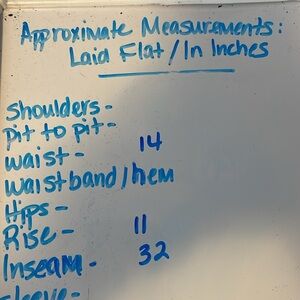 Approximate Measurements:
Laid Flat / In Inches
Shoulders -
Pit to pit -
Waist - 14
Waistband / hem
Hips -
Rise - 11
Inseam - 32
Sleeve -